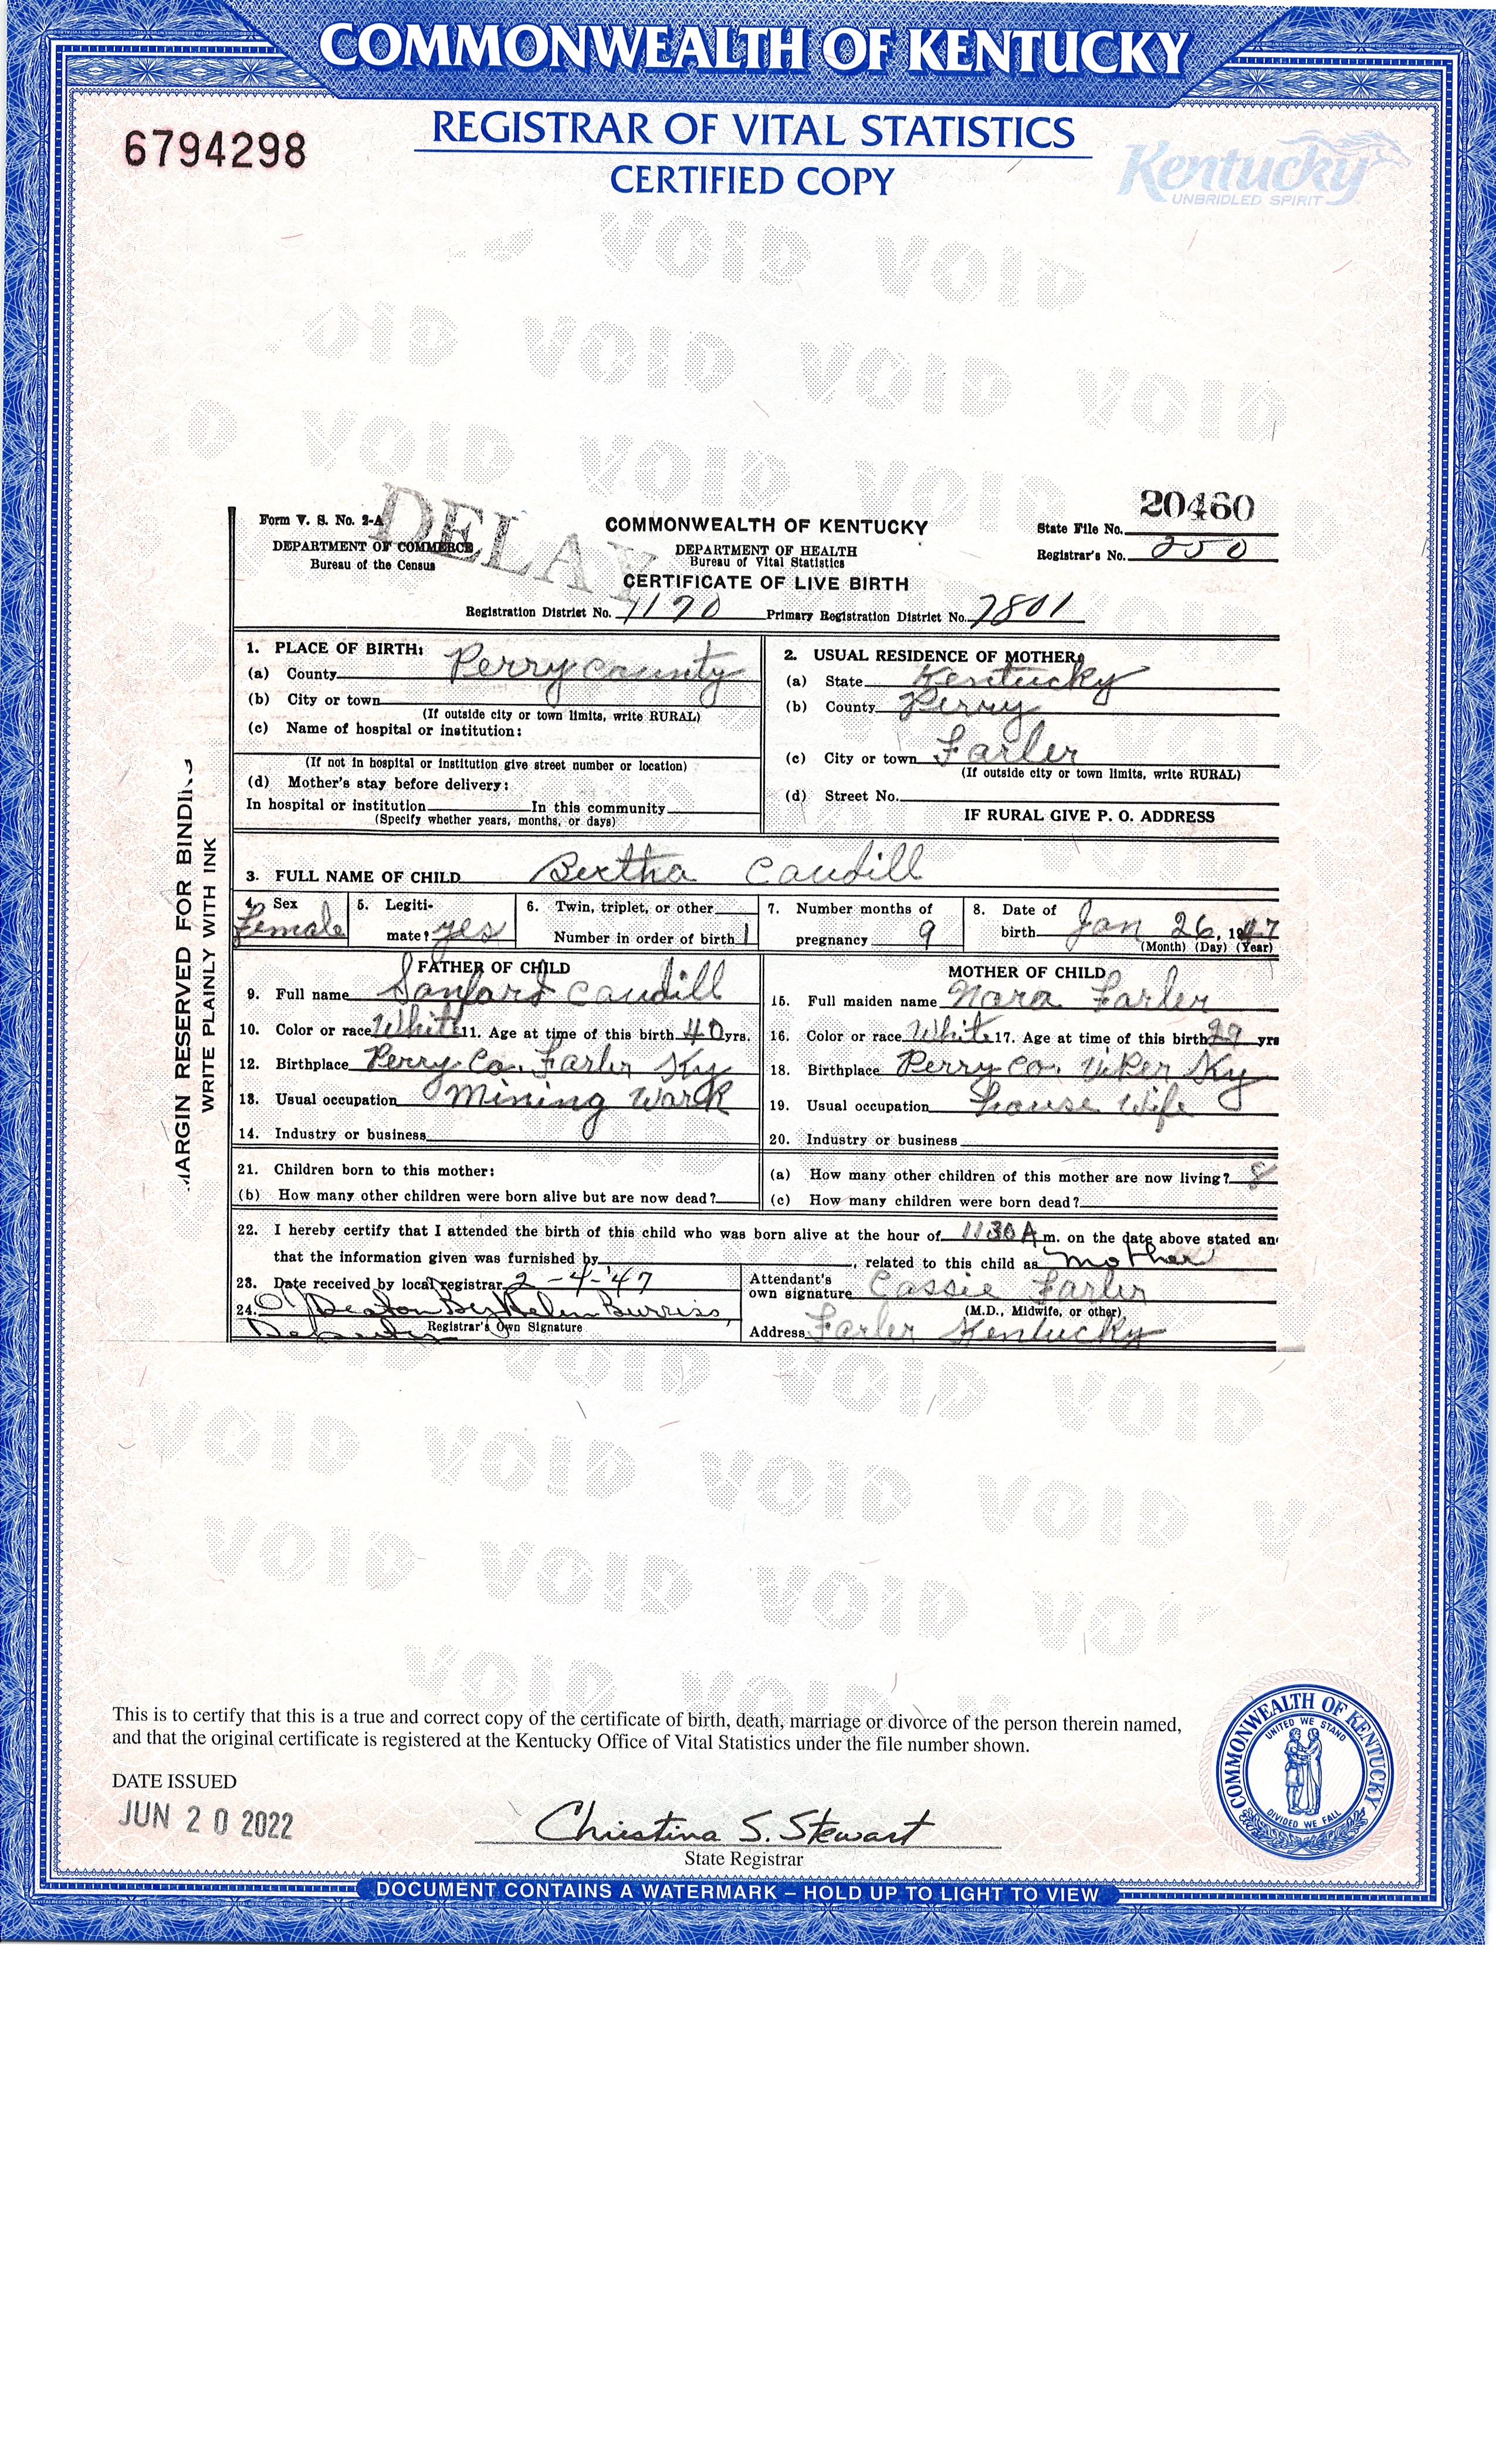 COMMONWEALTH OF KENTUCKY
REGISTRAR OF VITAL STATISTICS
CERTIFIED COPY
6794298
Kentucky
UNBRIDLED SPIRIT
DELAY
Form V. S. No. 2-A
DEPARTMENT OF COMMERCE
Bureau of the Census
COMMONWEALTH OF KENTUCKY
DEPARTMENT OF HEALTH
Bureau of Vital Statistics
CERTIFICATE OF LIVE BIRTH
20460
State File No.
Registrar's No. 250
Registration District No. 1190 Primary Registration District No. 7801
MARGIN RESERVED FOR BINDING
WRITE PLAINLY WITH INK
1. PLACE OF BIRTH:
(a) County Perry county
(b) City or town
(If outside city or town limits, write RURAL)
(c) Name of hospital or institution:
(If not in hospital or institution give street number or location)
(d) Mother's stay before delivery:
In hospital or institution In this community
(Specify whether years, months, or days)
2. USUAL RESIDENCE OF MOTHER:
(a) State Kentucky
(b) County Perry
(c) City or town Farler
(If outside city or town limits, write RURAL)
(d) Street No.
IF RURAL GIVE P. O. ADDRESS
3. FULL NAME OF CHILD Bertha Caudill
4. Sex Female
5. Legitimate? yes
6. Twin, triplet, or other
Number in order of birth 1
7. Number months of pregnancy 9
8. Date of birth Jan 26, 1947
(Month) (Day) (Year)
FATHER OF CHILD
9. Full name Sanford Caudill
10. Color or race White 11. Age at time of this birth 40 yrs.
12. Birthplace Perry Co. Farler Ky
13. Usual occupation Mining Work
14. Industry or business
MOTHER OF CHILD
15. Full maiden name Nora Farler
16. Color or race White 17. Age at time of this birth 39 yrs
18. Birthplace Perry Co. Viper Ky
19. Usual occupation House Wife
20. Industry or business
21. Children born to this mother:
(a) How many other children of this mother are now living? 8
(b) How many other children were born alive but are now dead?
(c) How many children were born dead?
22. I hereby certify that I attended the birth of this child who was born alive at the hour of 1130 A m. on the date above stated an
that the information given was furnished by , related to this child as Mother
23. Date received by local registrar 2-4-'47
24. Deaton By Helen Burriss,
Deputy
Registrar's Own Signature
Attendant's
own signature Cassie Farler
(M.D., Midwife, or other)
Address Farler Kentucky
This is to certify that this is a true and correct copy of the certificate of birth, death, marriage or divorce of the person therein named,
and that the original certificate is registered at the Kentucky Office of Vital Statistics under the file number shown.
DATE ISSUED
JUN 20 2022
Christina S. Stewart
State Registrar
COMMONWEALTH OF KENTUCKY
UNITED WE STAND
DIVIDED WE FALL
DOCUMENT CONTAINS A WATERMARK – HOLD UP TO LIGHT TO VIEW